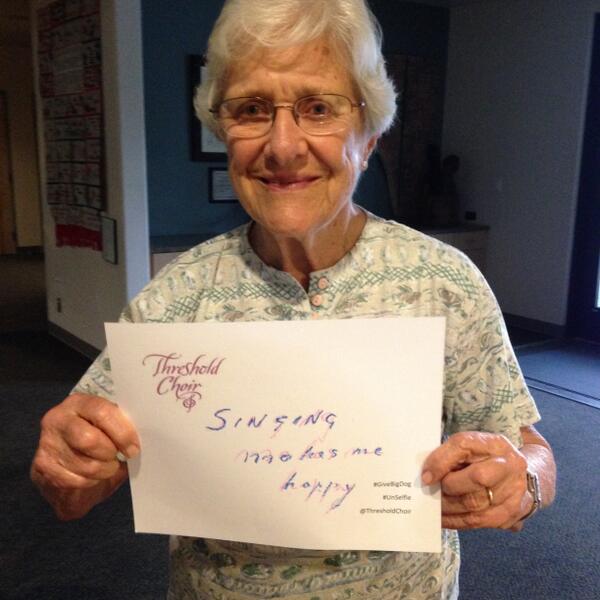 Threshold
Choir
SINGING
makes me
happy
#GiveBigDog
#UnSelfie
@ThresholdChoir